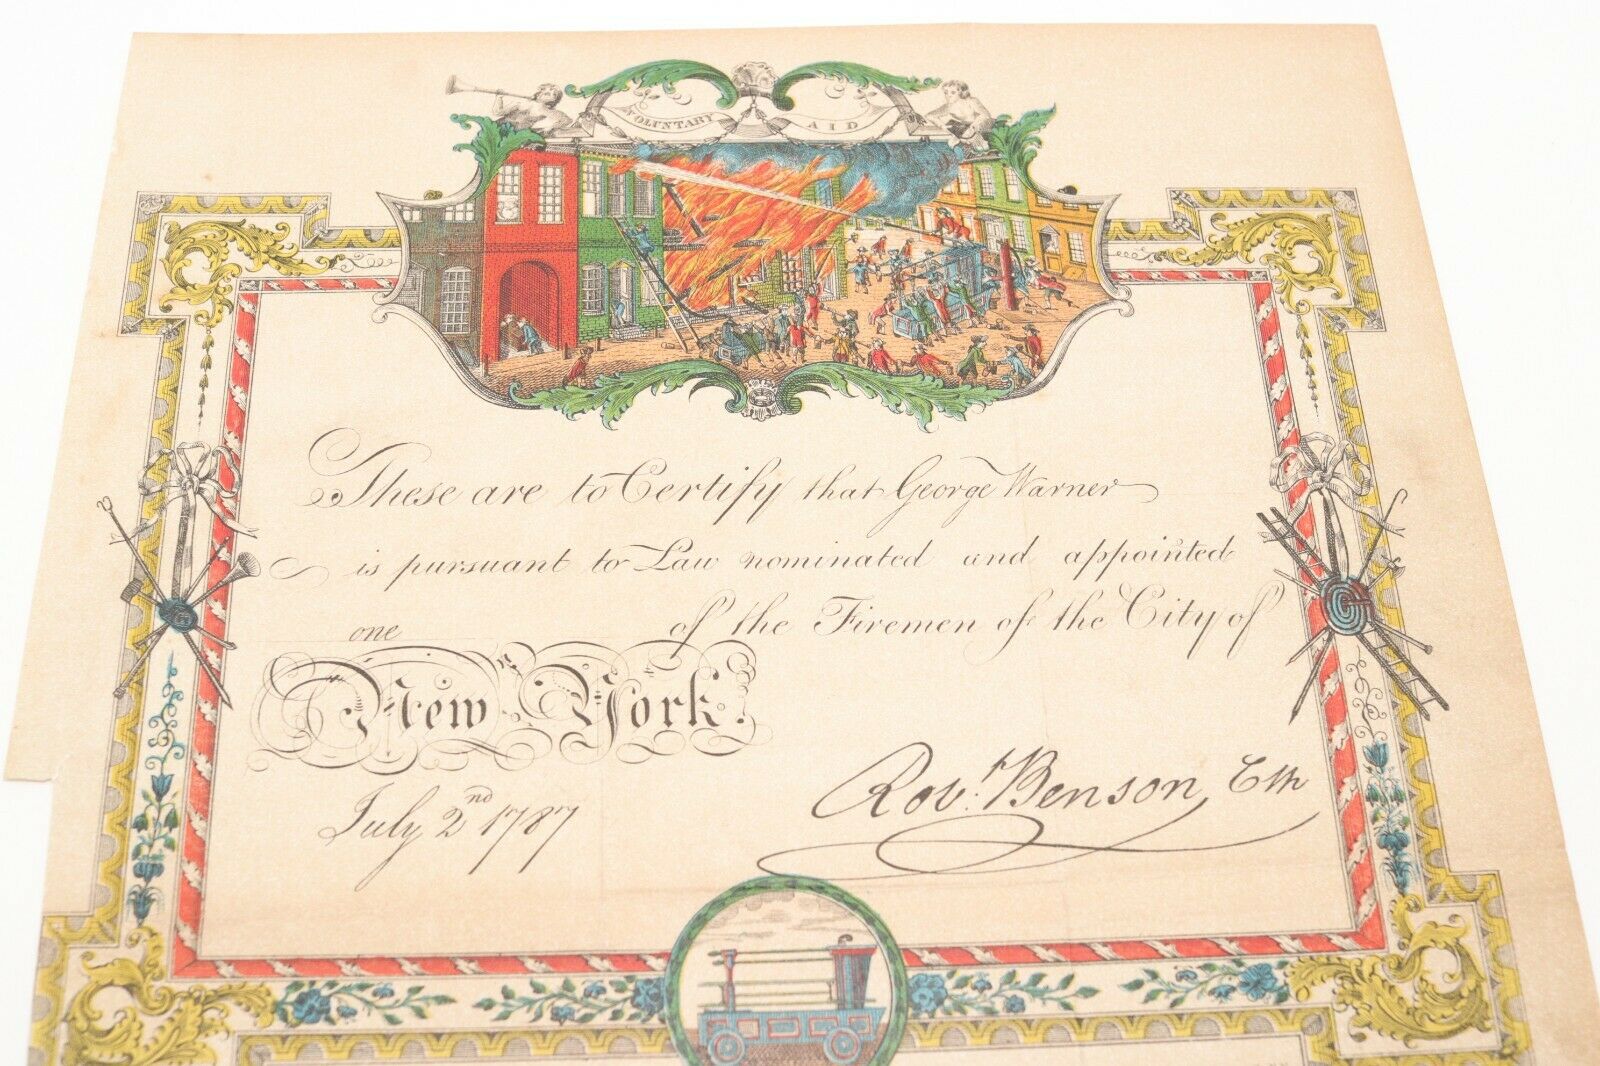 VOLUNTARY AID
These are to Certify that George Warner
is pursuant to Law nominated and appointed
one of the Firemen of the City of
New York.
July 2nd 1787
Robt. Benson, Clk